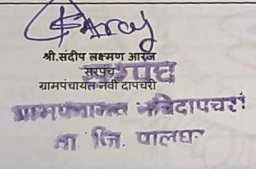 श्री.संदीप लक्ष्मण आरज
सरपंच
सरपंच
ग्रामपंचायत नवी दापचरी
ग्रामपंचायत नविदापचरी
ता. जि. पालघर